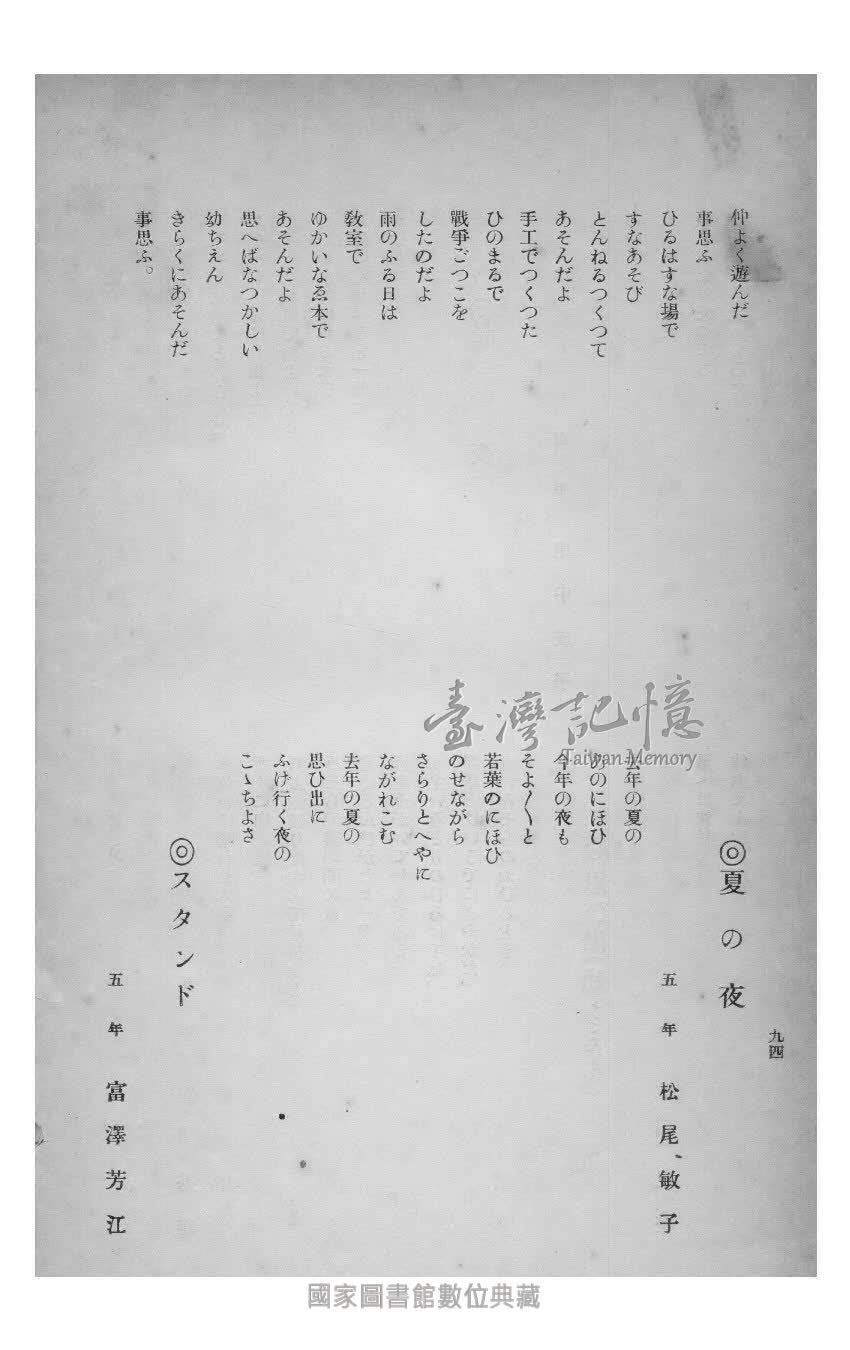 仲よく遊んだ
事思ふ
ひるはすな場で
すなあそび
とんねるつくつて
あそんだよ
手工でつくつた
ひのまるで
戰爭ごつこを
したのだよ
雨のふる日は
敎室で
ゆかいなゑ本で
あそんだよ
思へばなつかしい
幼ちえん
きらくにあそんだ
事思ふ。
◎夏の夜
五年 松尾敏子
去年の夏の
あのにほひ
今年の夜も
そよ〳〵と
若葉のにほひ
のせながら
さらりとへやに
ながれこむ
去年の夏の
思ひ出に
ふけ行く夜の
こゝちよさ
◎スタンド
五年 富澤芳江
九四
臺灣記憶
Taiwan Memory
國家圖書館數位典藏